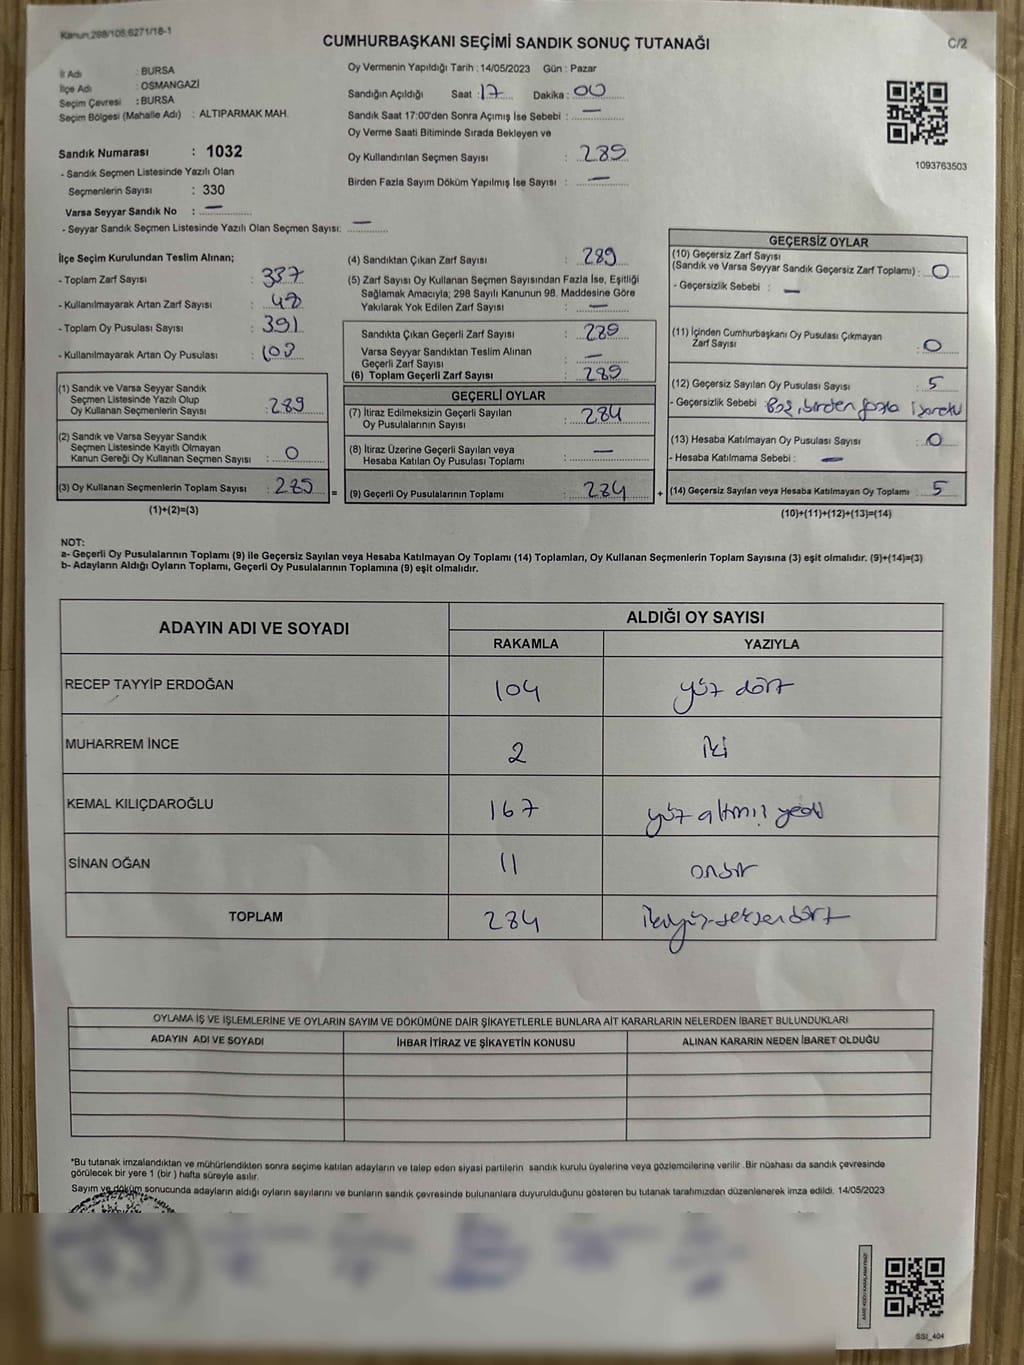 Kanun 298/105,6271/18-1
C/2
CUMHURBAŞKANI SEÇİMİ SANDIK SONUÇ TUTANAĞI
İl Adı : BURSA
İlçe Adı : OSMANGAZİ
Seçim Çevresi : BURSA
Seçim Bölgesi (Mahalle Adı) : ALTIPARMAK MAH.
Sandık Numarası : 1032
- Sandık Seçmen Listesinde Yazılı Olan
Seçmenlerin Sayısı : 330
Varsa Seyyar Sandık No : —
- Seyyar Sandık Seçmen Listesinde Yazılı Olan Seçmen Sayısı: —
Oy Vermenin Yapıldığı Tarih : 14/05/2023 Gün : Pazar
Sandığın Açıldığı Saat : 17 Dakika : 00
Sandık Saat 17:00'den Sonra Açımış İse Sebebi : —
Oy Verme Saati Bitiminde Sırada Bekleyen ve
Oy Kullandırılan Seçmen Sayısı : 289
Birden Fazla Sayım Döküm Yapılmış İse Sayısı : —
1093763503
İlçe Seçim Kurulundan Teslim Alınan;
- Toplam Zarf Sayısı : 337
- Kullanılmayarak Artan Zarf Sayısı : 48
- Toplam Oy Pusulası Sayısı : 391
- Kullanılmayarak Artan Oy Pusulası :
(1) Sandık ve Varsa Seyyar Sandık
Seçmen Listesinde Yazılı Olup
Oy Kullanan Seçmenlerin Sayısı : 289
(2) Sandık ve Varsa Seyyar Sandık
Seçmen Listesinde Kayıtlı Olmayan
Kanun Gereği Oy Kullanan Seçmen Sayısı : 0
(3) Oy Kullanan Seçmenlerin Toplam Sayısı : 289 =
(1)+(2)=(3)
(4) Sandıktan Çıkan Zarf Sayısı : 289
(5) Zarf Sayısı Oy Kullanan Seçmen Sayısından Fazla İse, Eşitliği
Sağlamak Amacıyla; 298 Sayılı Kanunun 98. Maddesine Göre
Yakılarak Yok Edilen Zarf Sayısı : —
Sandıkta Çıkan Geçerli Zarf Sayısı : 289
Varsa Seyyar Sandıktan Teslim Alınan
Geçerli Zarf Sayısı : —
(6) Toplam Geçerli Zarf Sayısı : 289
GEÇERLİ OYLAR
(7) İtiraz Edilmeksizin Geçerli Sayılan
Oy Pusulalarının Sayısı : 284
(8) İtiraz Üzerine Geçerli Sayılan veya
Hesaba Katılan Oy Pusulası Toplamı : —
(9) Geçerli Oy Pusulalarının Toplamı : 284 +
GEÇERSİZ OYLAR
(10) Geçersiz Zarf Sayısı
(Sandık ve Varsa Seyyar Sandık Geçersiz Zarf Toplamı) : 0
- Geçersizlik Sebebi : —
(11) İçinden Cumhurbaşkanı Oy Pusulası Çıkmayan
Zarf Sayısı : 0
(12) Geçersiz Sayılan Oy Pusulası Sayısı : 5
- Geçersizlik Sebebi : Boş, birden fazla
(13) Hesaba Katılmayan Oy Pusulası Sayısı : 0
- Hesaba Katılmama Sebebi : —
(14) Geçersiz Sayılan veya Hesaba Katılmayan Oy Toplamı : 5
(10)+(11)+(12)+(13)=(14)
NOT:
a- Geçerli Oy Pusulalarının Toplamı (9) ile Geçersiz Sayılan veya Hesaba Katılmayan Oy Toplamı (14) Toplamları, Oy Kullanan Seçmenlerin Toplam Sayısına (3) eşit olmalıdır. (9)+(14)=(3)
b- Adayların Aldığı Oyların Toplamı, Geçerli Oy Pusulalarının Toplamına (9) eşit olmalıdır.
ADAYIN ADI VE SOYADI
ALDIĞI OY SAYISI
RAKAMLA YAZIYLA
RECEP TAYYİP ERDOĞAN 104 yüz dört
MUHARREM İNCE 2 iki
KEMAL KILIÇDAROĞLU 167 yüz altmış yedi
SİNAN OĞAN 11 onbir
TOPLAM 284 ikiyüzseksendört
OYLAMA İŞ VE İŞLEMLERİNE VE OYLARIN SAYIM VE DÖKÜMÜNE DAİR ŞİKAYETLERLE BUNLARA AİT KARARLARIN NELERDEN İBARET BULUNDUKLARI
ADAYIN ADI VE SOYADI İHBAR İTİRAZ VE ŞİKAYETİN KONUSU ALINAN KARARIN NEDEN İBARET OLDUĞU
*Bu tutanak imzalandıktan ve mühürlendikten sonra seçime katılan adayların ve talep eden siyasi partilerin sandık kurulu üyelerine veya gözlemcilerine verilir. Bir nüshası da sandık çevresinde
görülecek bir yere 1 (bir ) hafta süreyle asılır.
Sayım ve döküm sonucunda adayların aldığı oyların sayılarını ve bunların sandık çevresinde bulunanlara duyurulduğunu gösteren bu tutanak tarafımızdan düzenlenerek imza edildi. 14/05/2023
SSI_404